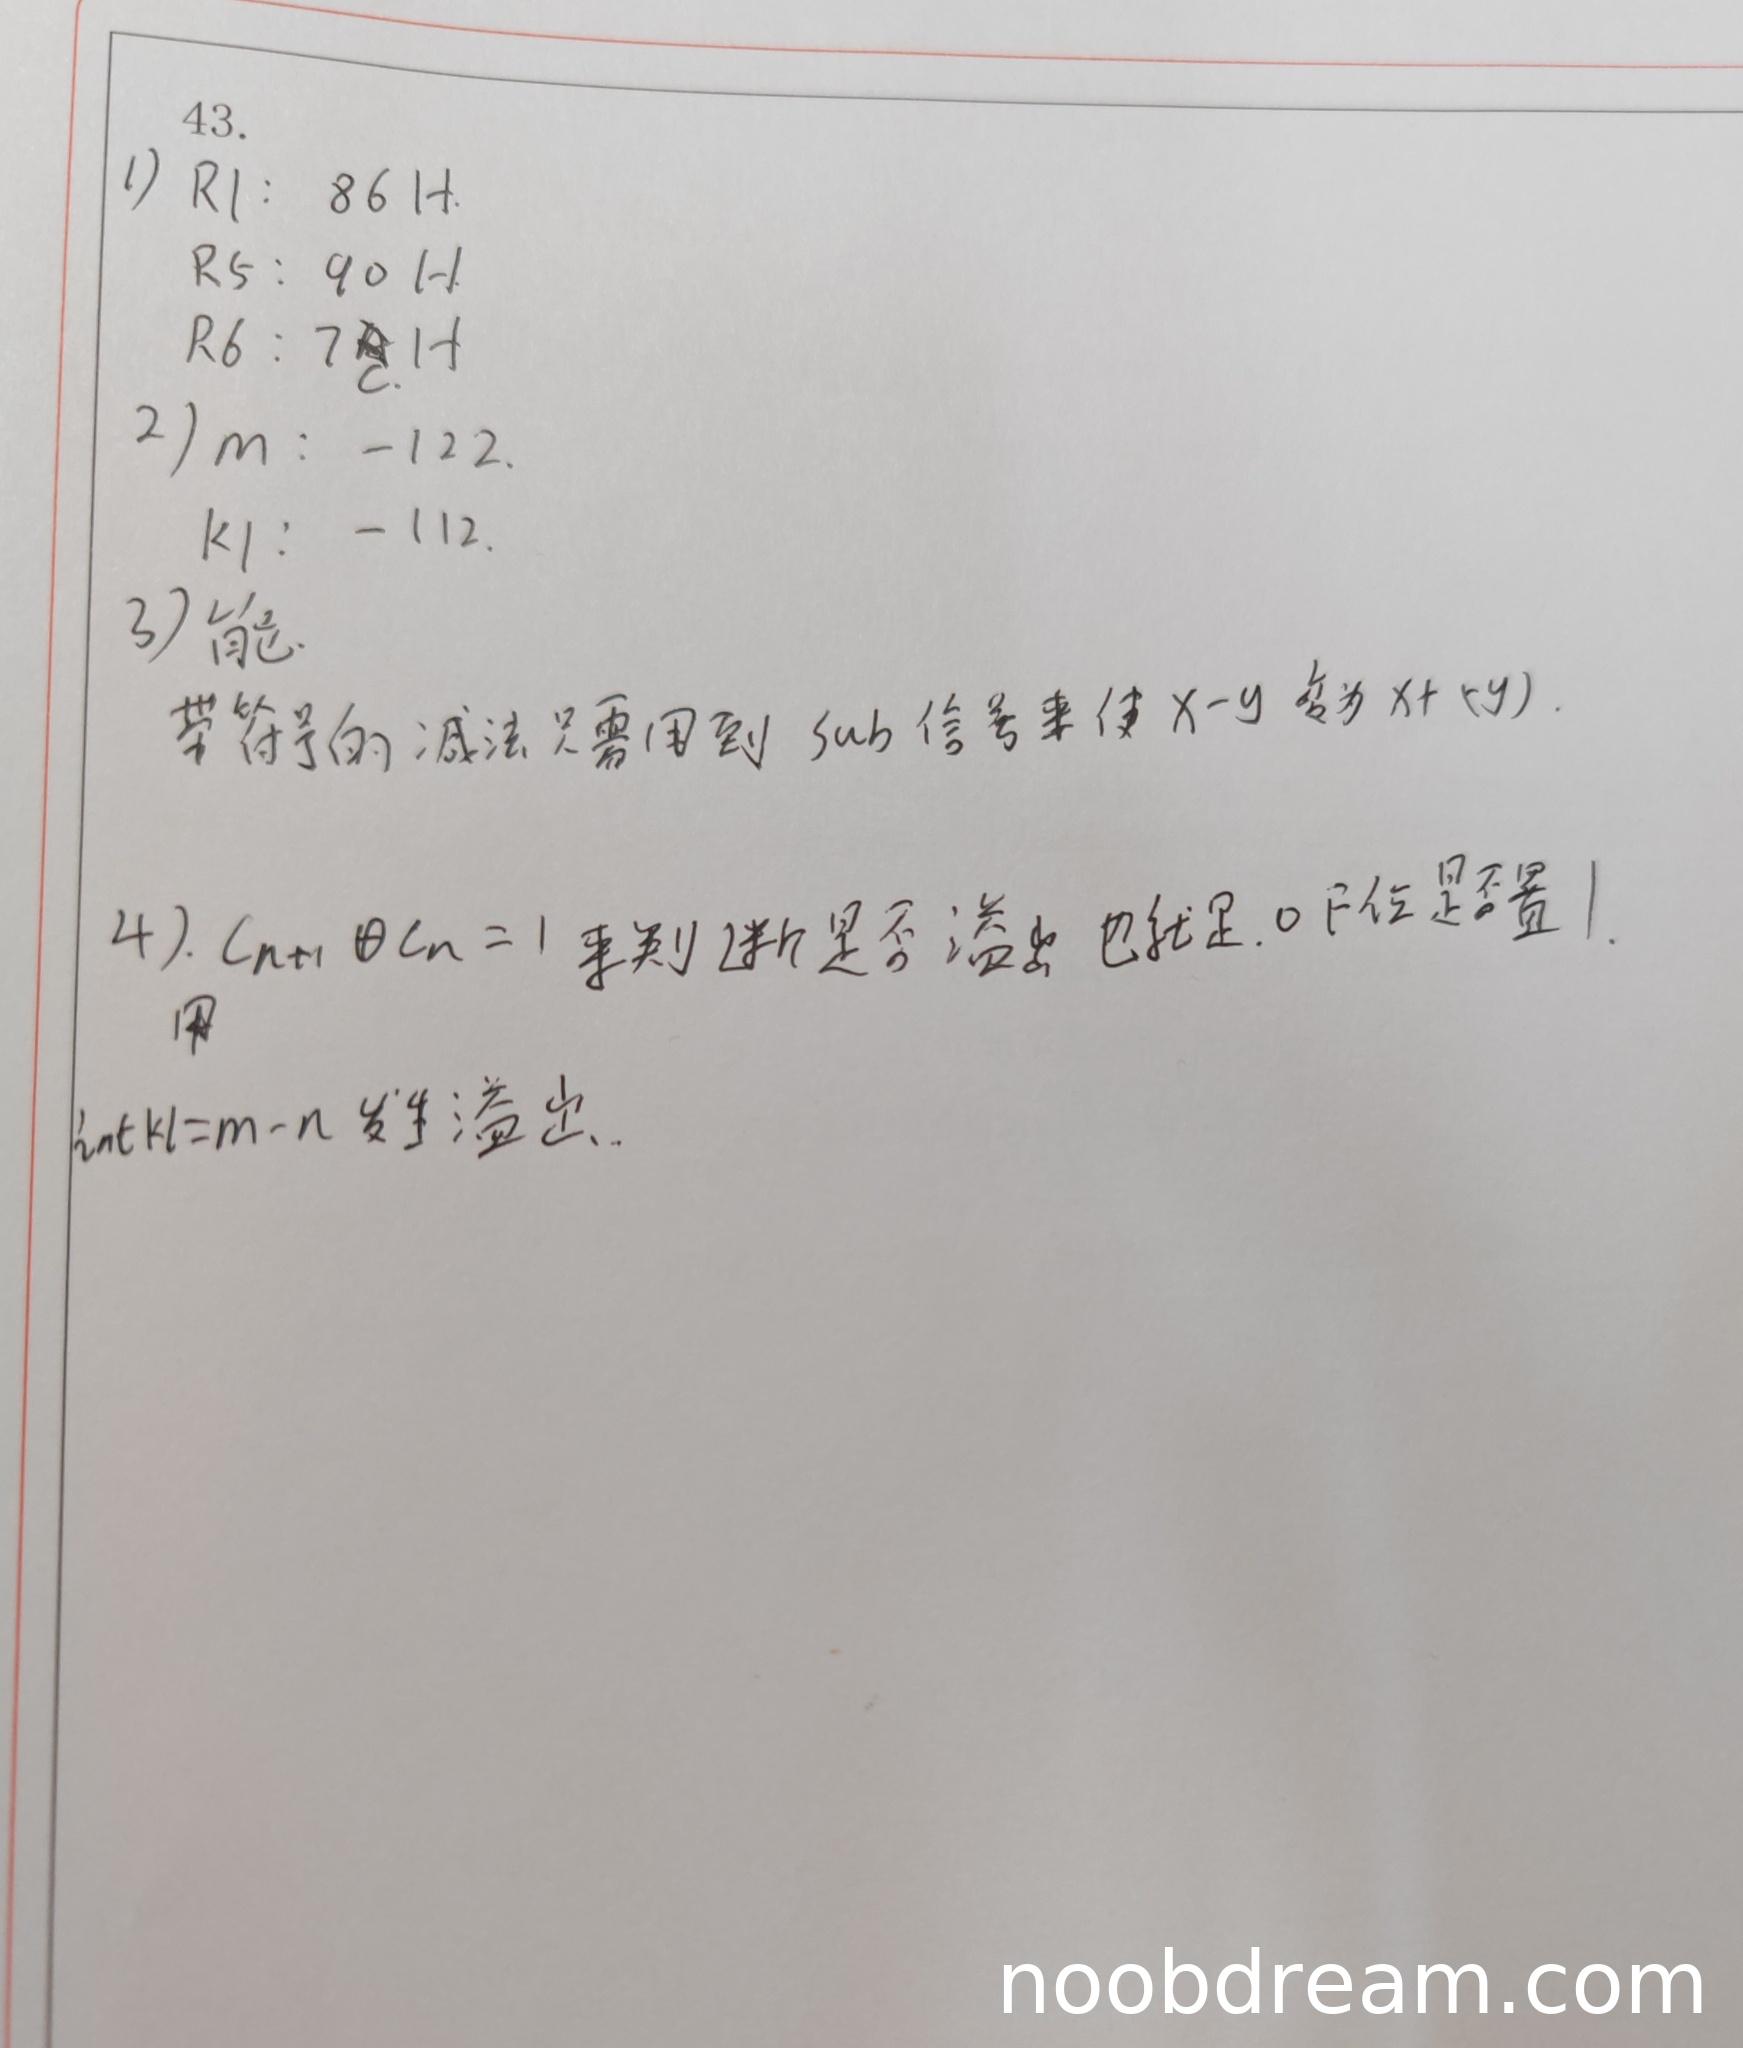 43.
1) R1: 86H.
R5: 90H
R6: 7CH
2) m: -122.
k1: -112.
3) 能.
带符号的减法只需用到 sub 信号来使 x-y 变为 x+(-y).
4). Cn+1 ⊕ Cn = 1 来判断是否溢出 也就是. OF位是否置1.
用
int k1=m-n 发生溢出..
noobdream.com